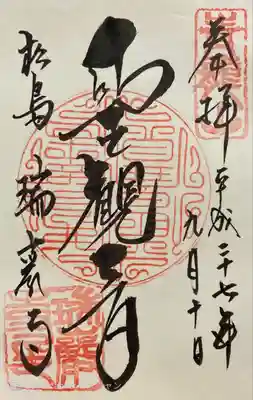 奉拝 平成二十七年
九月十日
聖觀音
松島 瑞巌寺